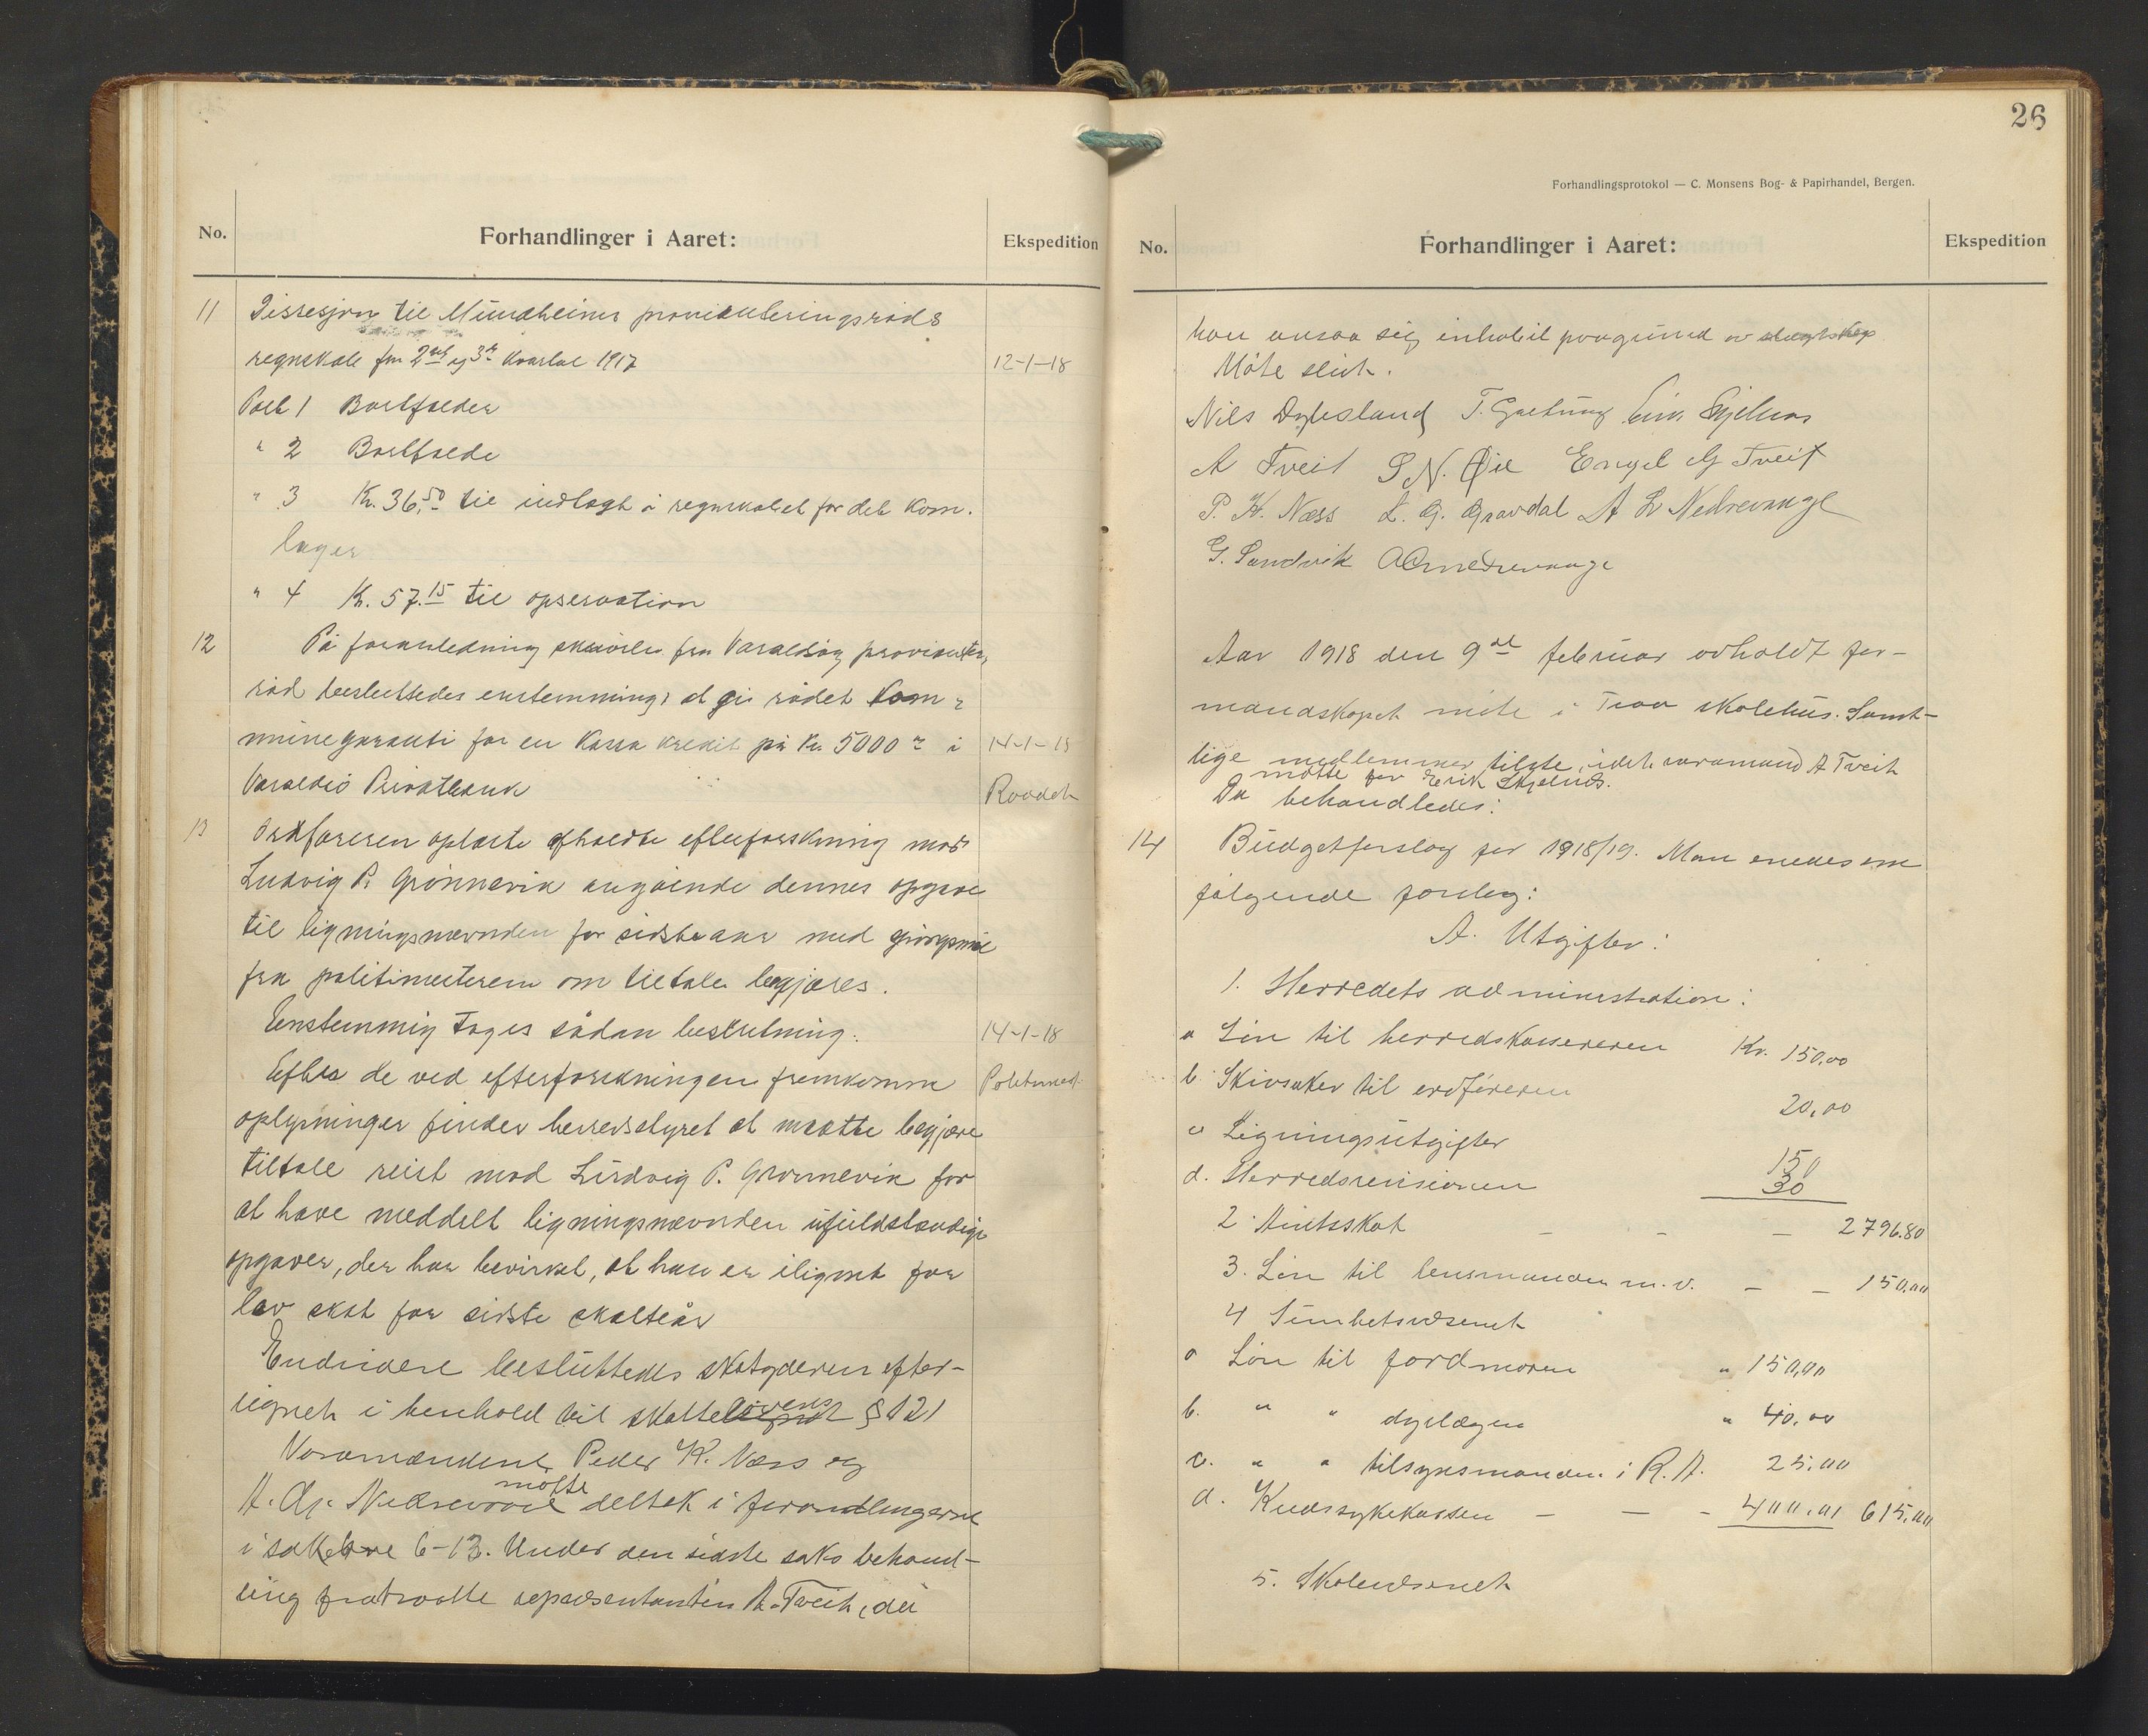 No.
Forhandlinger i Aaret:
Ekspedition
11 Disisjon til Mundheims provianteringsråds
regnskab for 2det og 3de kvartal 1917 12-1-18
Post 1 Bortfalder
" 2 Bortfalde
" 3 Kr. 36,50 til indtægt i regnskabet for det kom.
lager
" 4 Kr. 57.15 til opservation
12 På foranledning skrivelse fra Varaldsøy provianter.
råd besluttedes enstemmig at gi rådet kom-
munegaranti for en kassakredit på kr. 5000 i 14-1-18
Varaldsö Privatbank Raadet
13 Ordføreren oplæste afholdte efterforskning mod
Ludvig P. Grönnevik angående dennes opgave
til ligningsnævnden for sidste aar med
fra politimesteren om tiltale begjæres.
Enstemmig toges sådan beslutning: 14-1-18
Efter de ved efterforskningen fremkomne Politimest.
oplysninger finder herredsstyret at maatte begjære
tiltale reist mod Ludvig P. Grønnevik for
at have meddelt ligningsnævnden ufuldstændige
opgaver, der har bevirket, at han er ilignet for
lav skat for sidste skatteår
Endvidere besluttedes skatyderen efter-
lignet i henhold til skattelovens § 121
Varamændene Peder K. Næss og
A. Nedrevaage møtte deltok i forandlingerne
i sakene 6-13. Under den sidste saks behand-
ling fratraatte representanten A. Tveit, da
26
Forhandlingsprotokol — C. Monsens Bog- & Papirhandel, Bergen.
No.
Forhandlinger i Aaret:
Ekspedition
han ansaa sig inhabil paagrund av slægtskap
Möte slut.
Nils Dysesland T. Gjetung Eirik Skjelnes
A Tveit S N. Øie Engel G Tveit
P. K. Næss L. G. Gravdal A L Nedrevaage
G. Sandvik Nedrevaage
Aar 1918 den 9de februar avholdt for-
mandskapet möte i Traa skolehus. Samt-
lige medlemmer tilste, idet varamand A Tveit
møtte for Erik Skjelnes.
Da behandledes:
14 Budgetforslag for 1918/19. Man enedes om
følgende forslag:
A. Utgifter:
1. Herredets administration:
a Løn til herredskassereren Kr. 150,00
b. Skrivsaker til ordføreren 20,00
c Ligningsutgifter 150
d. Herredsrevisionen 30
2. Amtsskat - - - 2796.80
3. Løn til lensmanden m. v. - - 150,00
4 Sundhetsvæsenet
a Løn til jordmoren " 150,00
b. " " dyrlægen " 40,00
c. " " tilsynsmanden i R. A. 25,00
d. Kredssykekassen - - - 400,00 615,00
5. Skolevæsenet